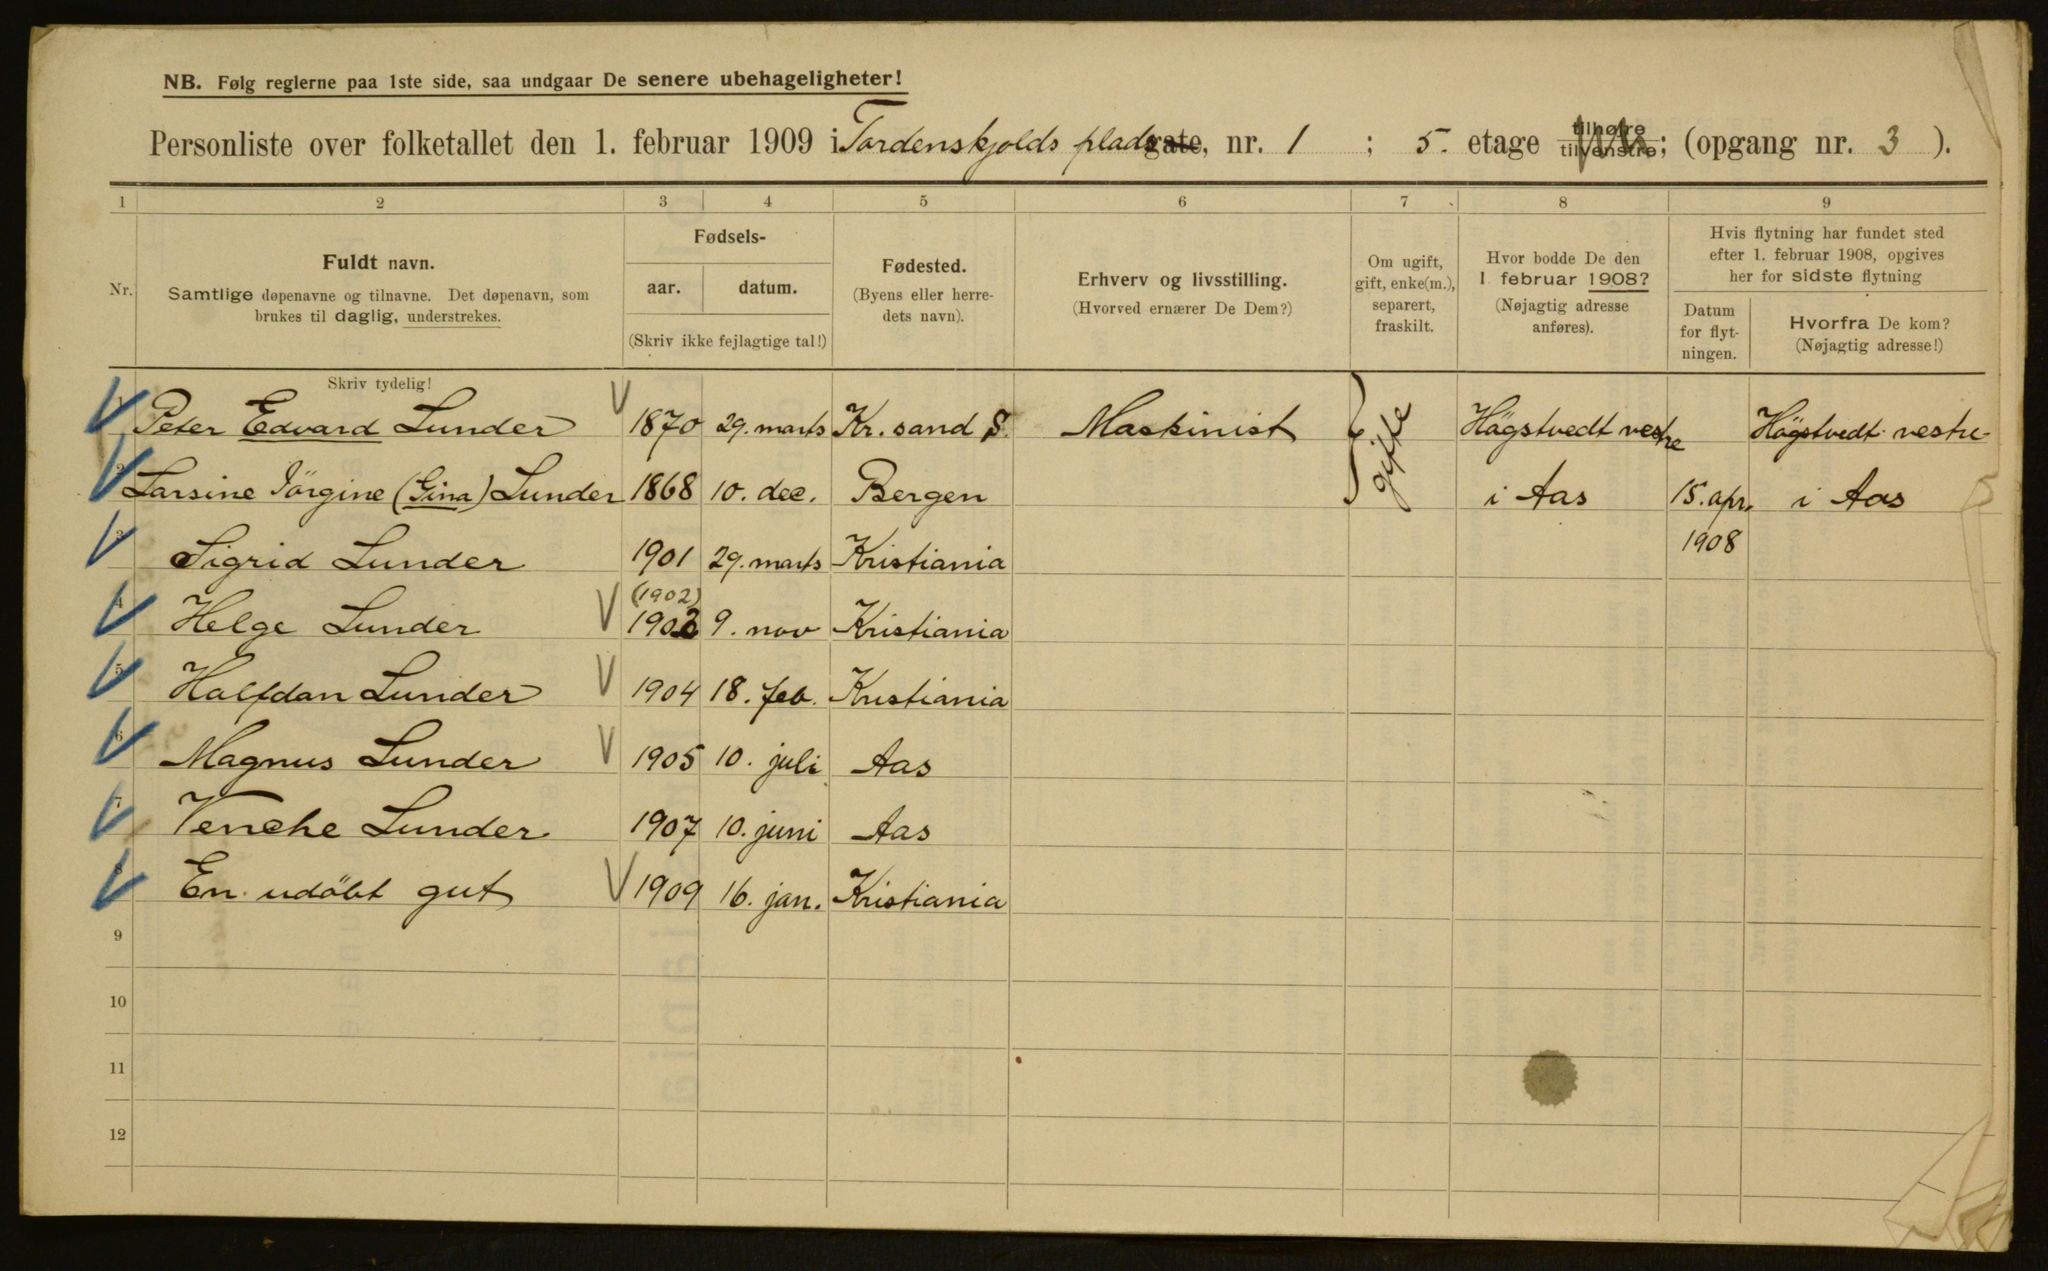 NB. Følg reglerne paa 1ste side, saa undgaar De senere ubehageligheter!
Personliste over folketallet den 1. februar 1909 i Tordenskjolds plads gate, nr. 1 ; 5. etage tilhøire tilvenstre; (opgang nr. 3 ).
1 2 3 4 5 6 7 8 9
Nr.
Fuldt navn.
Samtlige døpenavne og tilnavne. Det døpenavn, som
brukes til daglig, understrekes.
Skriv tydelig!
Fødsels-
aar. datum.
(Skriv ikke fejlagtige tal!)
Fødested.
(Byens eller herre-
dets navn).
Erhverv og livsstilling.
(Hvorved ernærer De Dem?)
Om ugift,
gift, enke(m.),
separert,
fraskilt.
Hvor bodde De den
1 februar 1908?
(Nøjagtig adresse
anføres).
Hvis flytning har fundet sted
efter 1. februar 1908, opgives
her for sidste flytning
Datum
for flyt-
ningen.
Hvorfra De kom?
(Nøjagtig adresse!)
1 Peter Edvard Lunder 1870 29. marts Kr. sand S. Maskinist gifte Högstvedt vestre Högstvedt vestre
2 Larsine Jörgine (Gina) Lunder 1868 10. dec. Bergen i Aas 15. apr. i Aas
3 Sigrid Lunder 1901 29. marts Kristiania 1908
(1902)
4 Helge Lunder 1902 9. nov Kristiania
5 Halfdan Lunder 1904 18. feb. Kristiania
6 Magnus Lunder 1905 10. juli Aas
7 Venche Lunder 1907 10. juni Aas
8 En udöbt gut 1909 16. jan. Kristiania
9
10
11
12